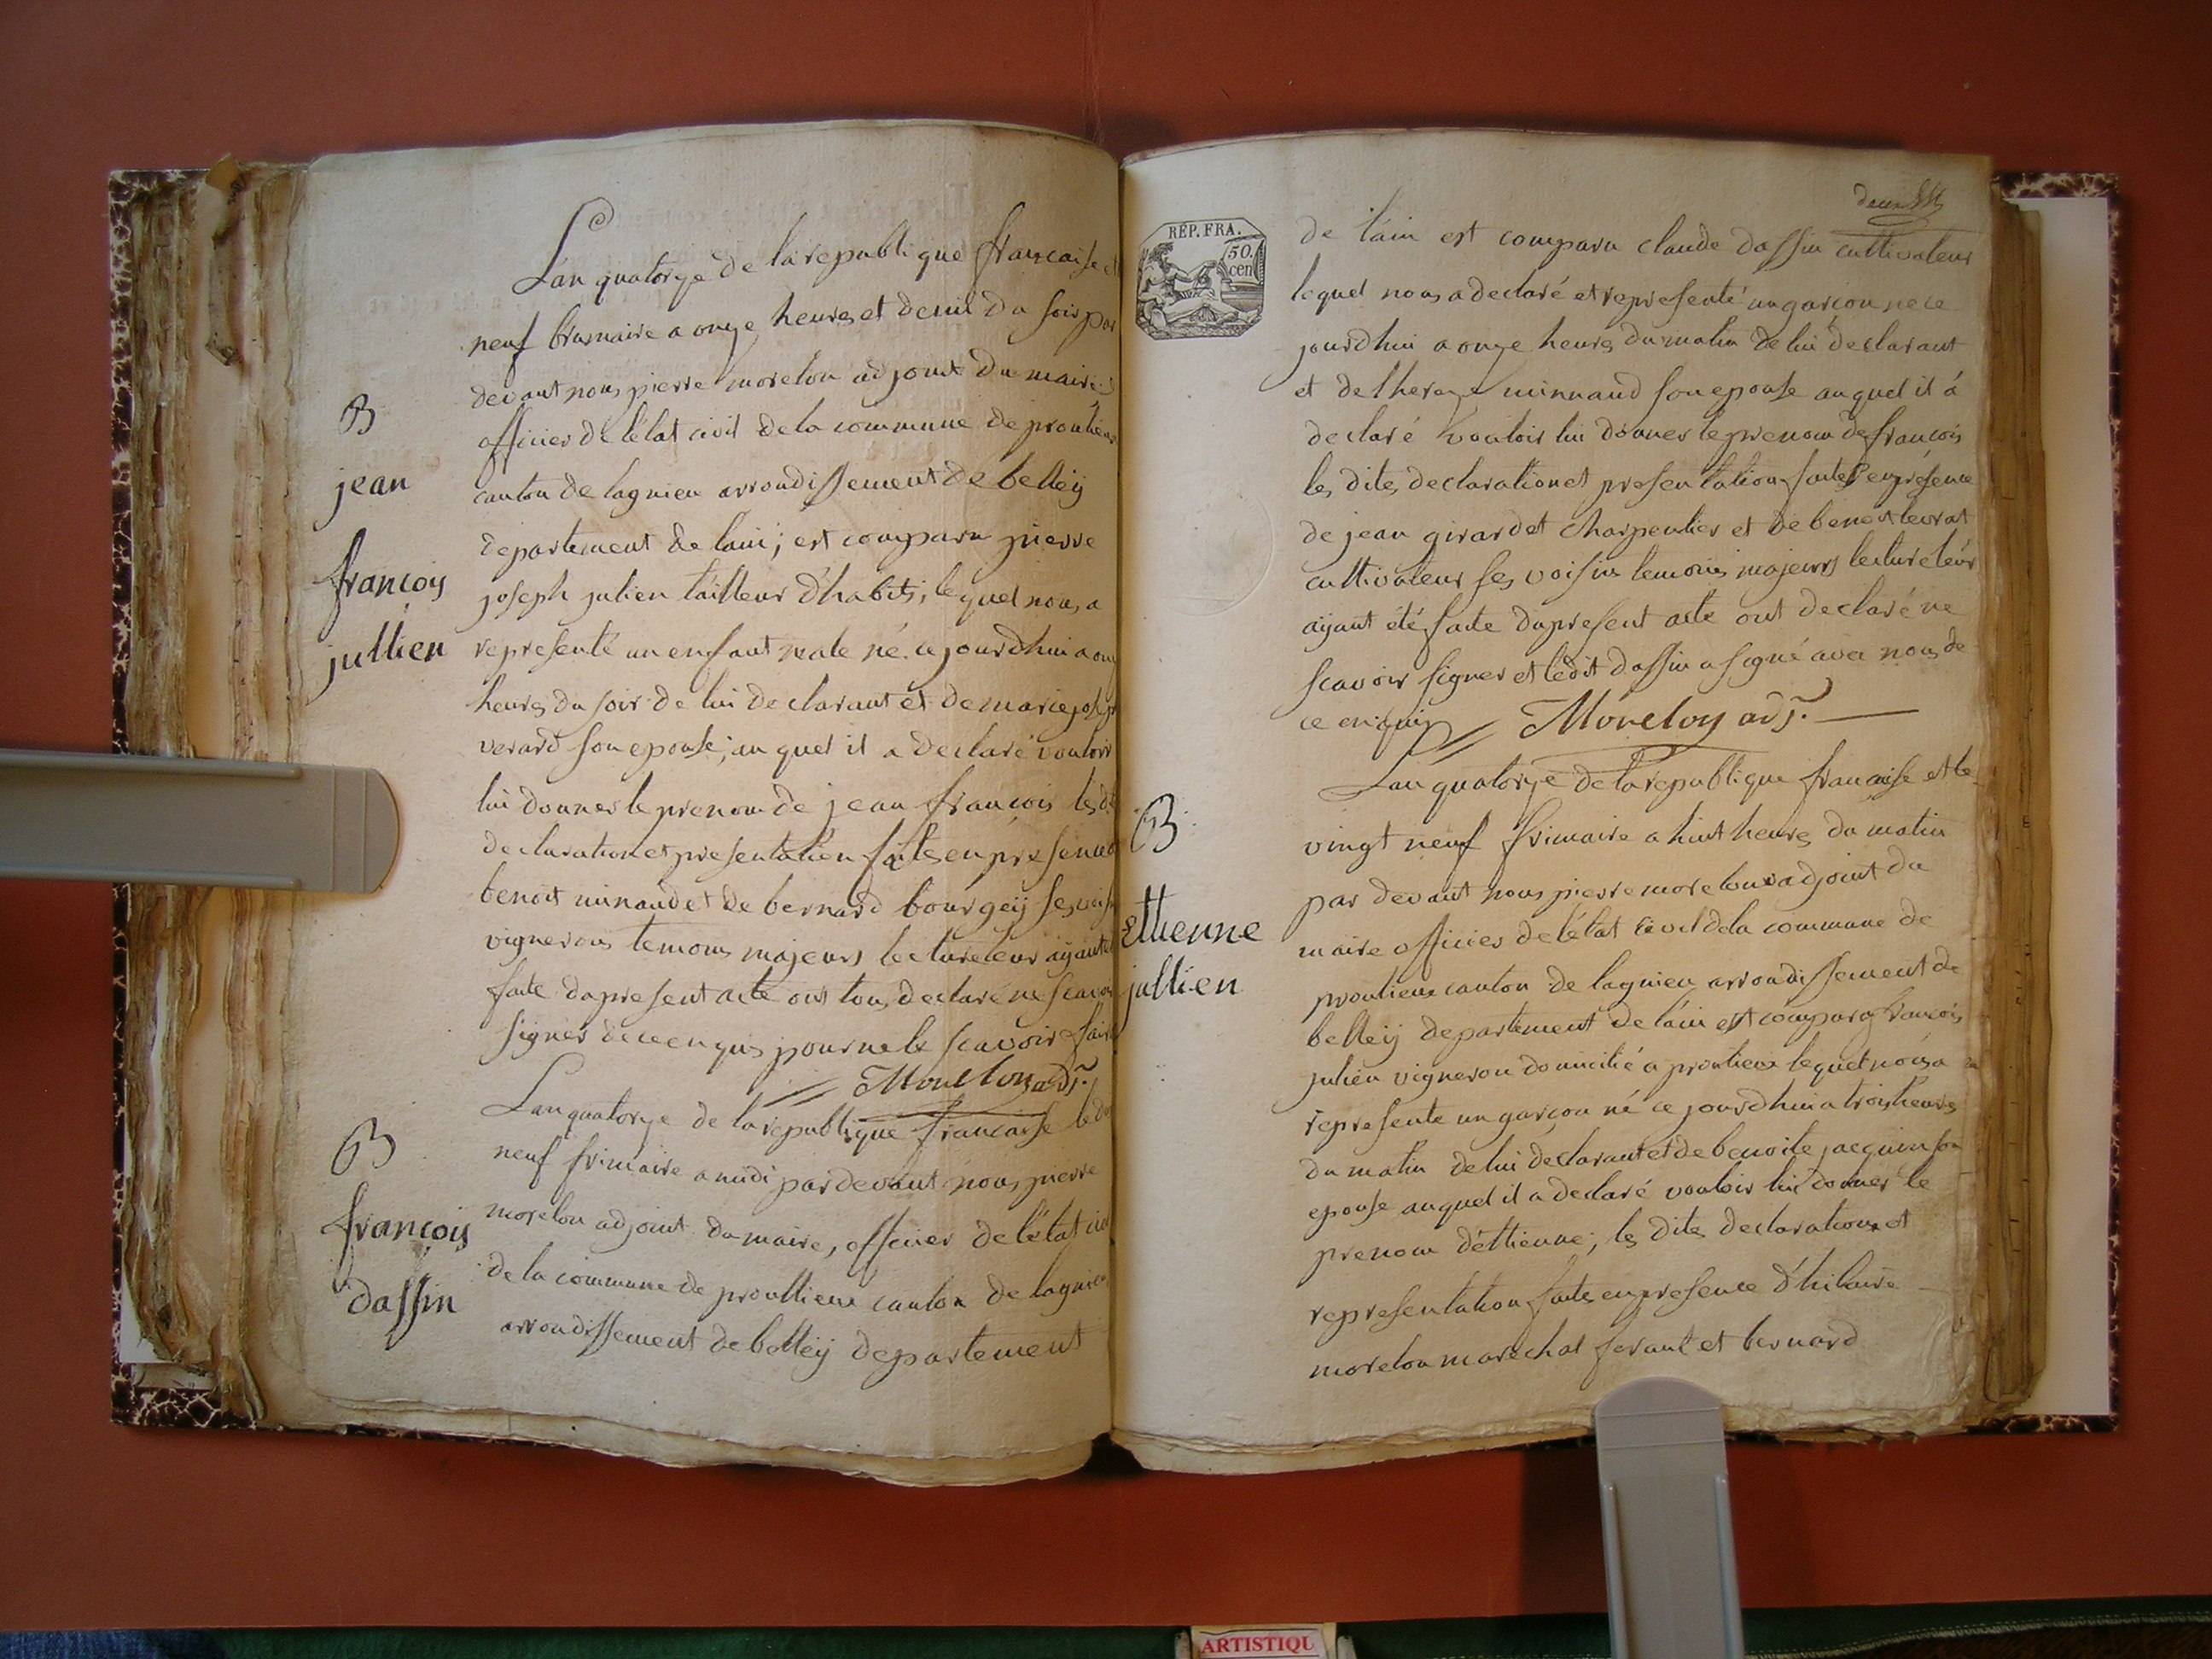 L'an quatorze de la republique francaise et
neuf brumaire a onze heures et demie du soir par
devant nous pierre morelon adjoint du maire
officier de l'état civil de la commune de proulieu
canton de lagnieu arrondissement de belley
departement de lain; est comparu pierre
joseph julien tailleur d'habits, lequel nous a
representé un enfant male né cejourdhui a onz
heures du soir de lui declarant et de marie
verard son epouse; au quel il a declaré vouloir
lui donner le prenom de jean francois les d
declaration et presentation faites en presence
benoit minaud et de bernard bourgeÿ ses
vignerons temoins majeurs lecture leur aÿant
faite du present acte ont tous declaré ne scavoir
signer de ce enquis pour ne le scavoir faire
Morelon adj.
B
jean
francois
jullien
Lan quatorze de la republique francaise le
neuf frimaire a midi pardevant nous pierre
morelon adjoint du maire, officier de l'état civil
de la commune de proullieu canton de lagnieu
arrondissement de belleÿ departement
B
francois
dassin
RÉP. FRA.
50.
cen
deux
de l'ain est comparu claude dassin cultivateur
lequel nous a declaré et representé un garcon né ce
jourdhui a onze heures du matin de lui declarant
et de thereze minnaud son epouse auquel il á
declaré vouloir lui donner le prenom de francois
les dites declaration et presentation faites en présence
de jean girardet charpentier et de benoit levrat
cultivateur ses voisins temoins majeurs lecture leur
aÿant été faite du present acte ont declaré ne
scavoir signer et ledit dassin a signé avec nous de
ce enquis Morelon adj.
Lan quatorze de la republique francaise et le
vingt neuf frimaire a huit heures du matin
par devant nous pierre morelon adjoint du
maire officier de l'état civil de la commune de
proulieu canton de lagnieu arrondissement de
belleÿ departement de l'ain est comparu francois
julien vigneron domicilié a proulieu lequel nous a
representé un garçon né ce jourdhui a trois heures
du matin de lui declarant et de benoite jacquin son
epouse auquel il a declaré vouloir lui donner le
prenom d'éttienne; les dites declaration et
representation faites en presence d'hilaire
morelon marechal ferant et bernard
B
Ettienne
jullien
ARTISTIQU